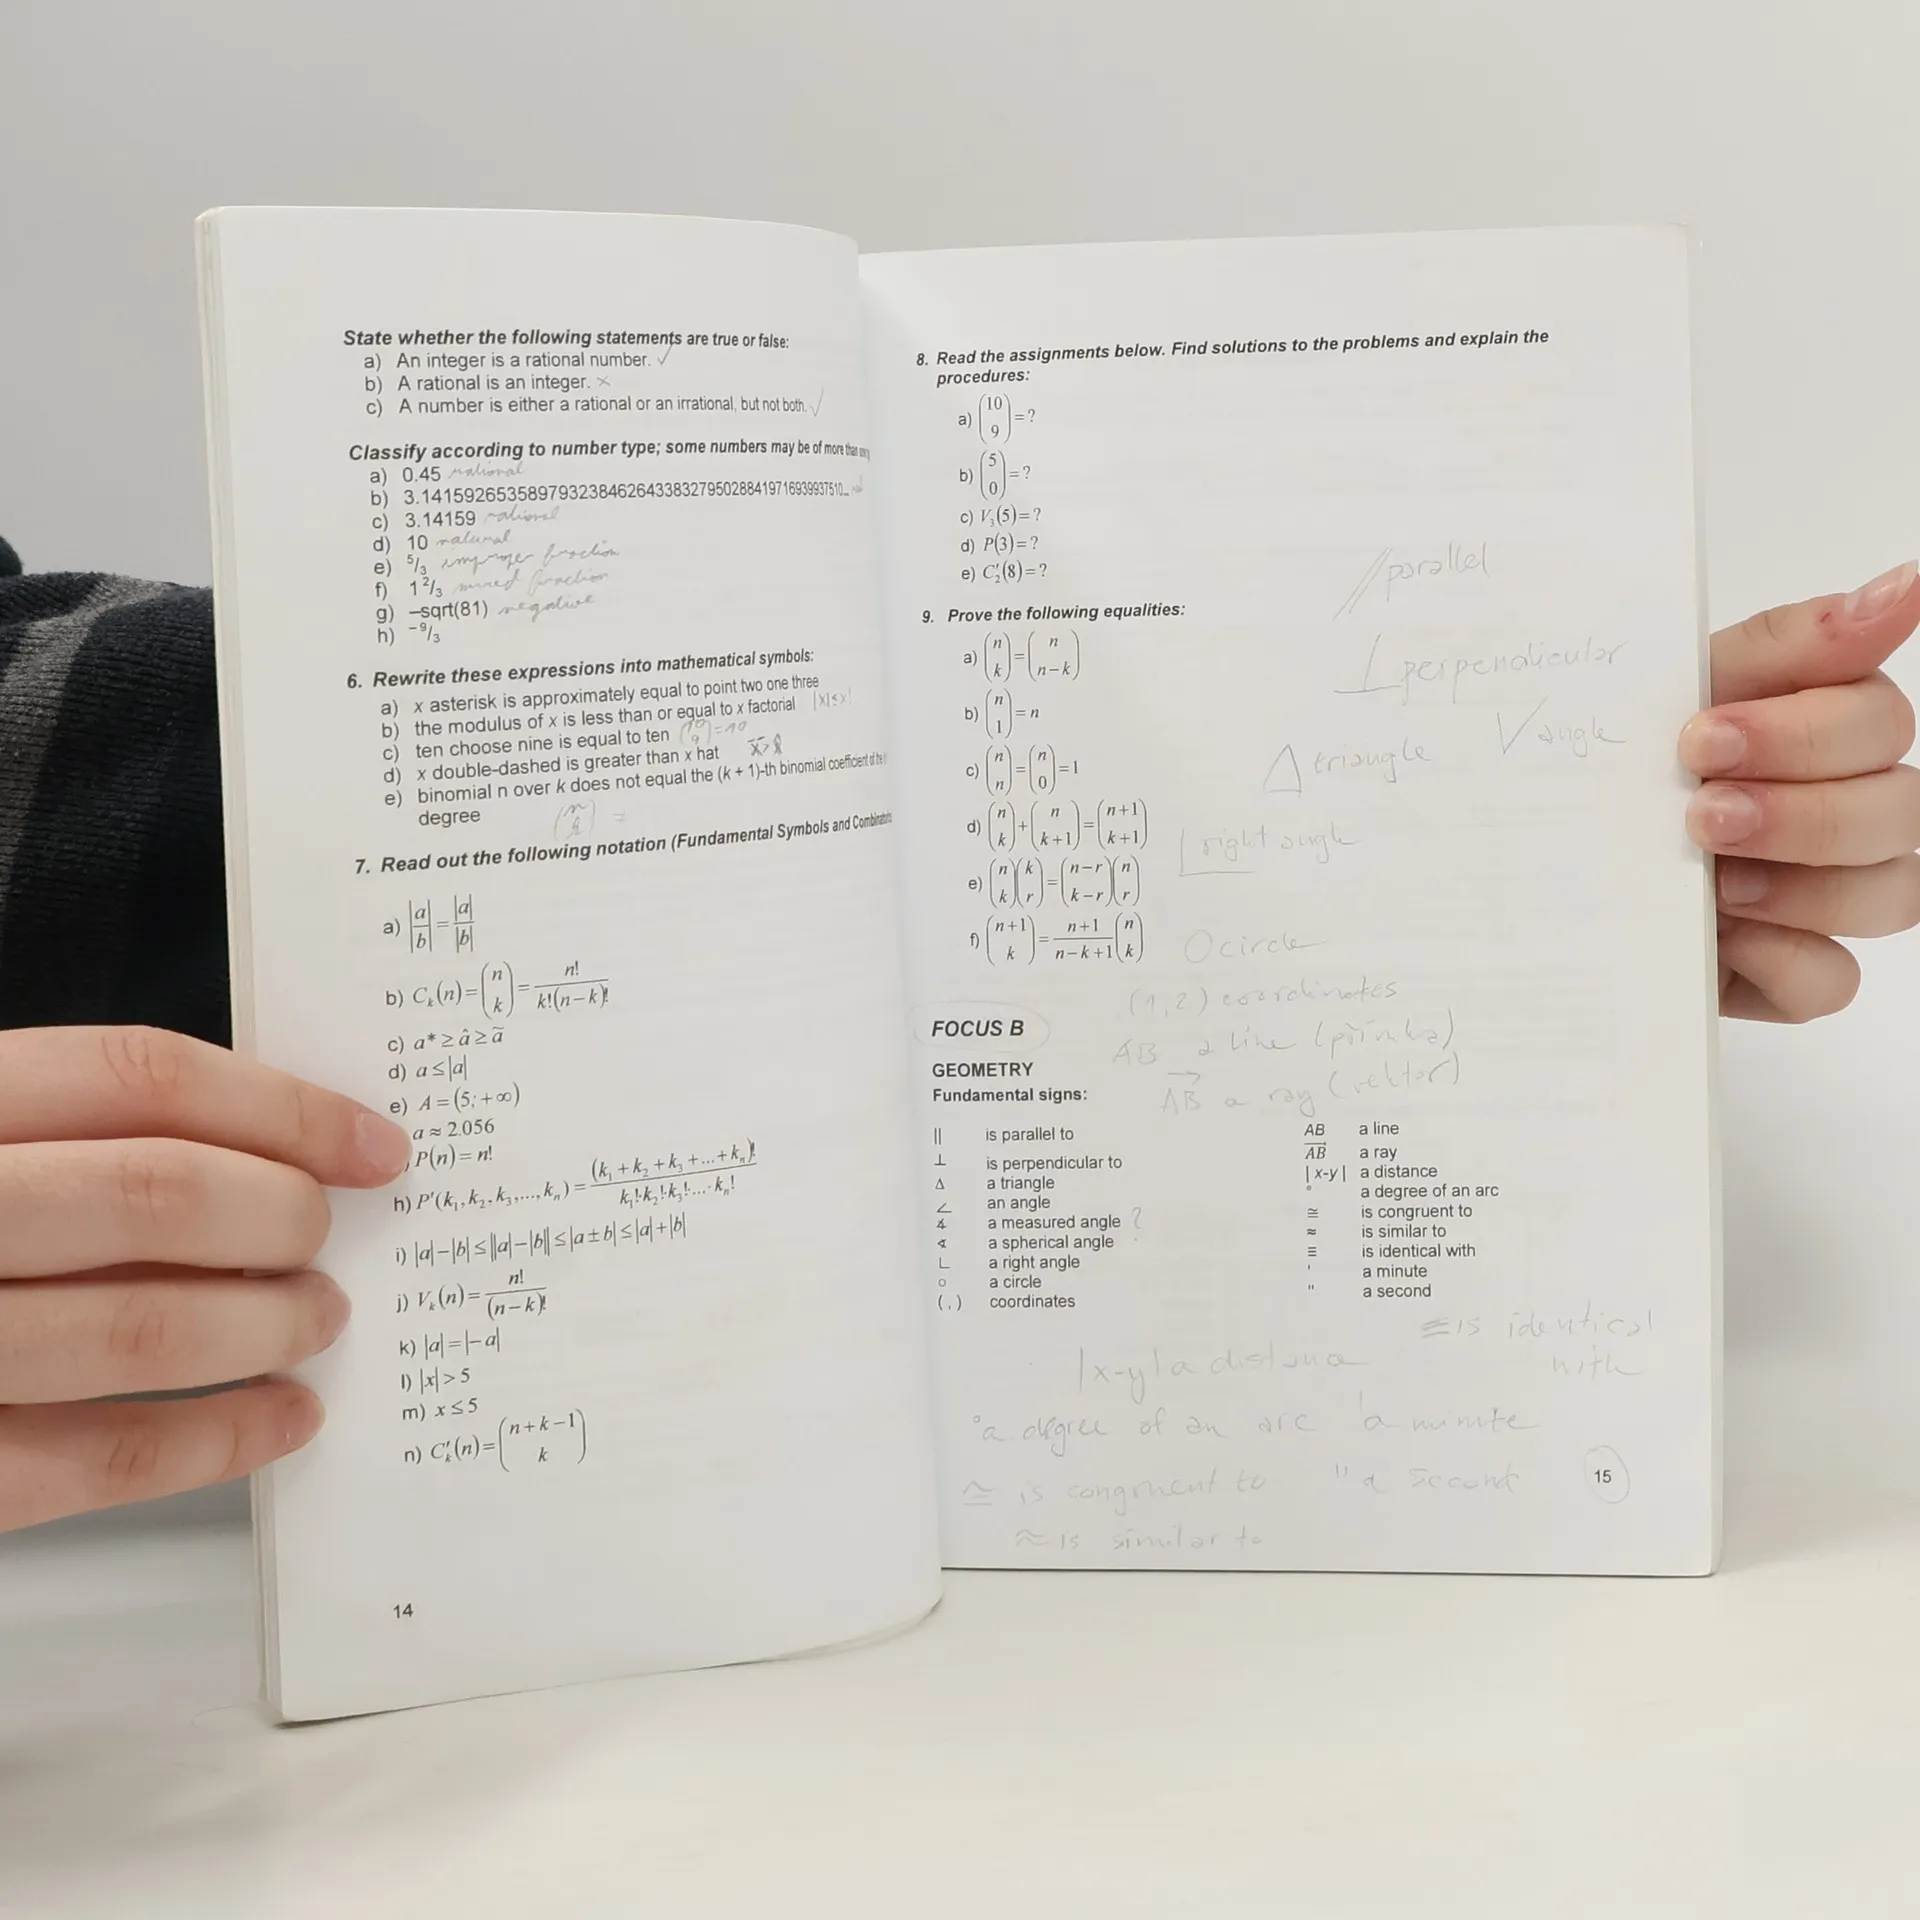 State whether the following statements are true or false:
a) An integer is a rational number. ✓
b) A rational is an integer. ×
c) A number is either a rational or an irrational, but not both. ✓
Classify according to number type; some numbers may be of more than
a) 0.45 rational
b) 3.14159265358979323846264338327950288419716939937510...
c) 3.14159 rational
d) 10 natural
e) 5/3 improper fraction
f) 1 2/3 mixed fraction
g) –sqrt(81) negative
h) –9/3
6. Rewrite these expressions into mathematical symbols:
a) x asterisk is approximately equal to point two one three
b) the modulus of x is less than or equal to x factorial |x|≤x!
c) ten choose nine is equal to ten (10 9)=10
d) x double-dashed is greater than x hat
e) binomial n over k does not equal the (k + 1)-th binomial coefficient of the
degree (n k) =
7. Read out the following notation (Fundamental Symbols and
a) |a/b| = |a|/|b|
b) Cₖ(n) = (n k) = n!/k!(n−k)!
c) a* ≥ â ≥ ã
d) a ≤ |a|
e) A = (5; +∞)
a ≈ 2.056
) P(n) = n!
h) P'(k₁, k₂, k₃,..., kₙ) = (k₁ + k₂ + k₃ + ... + kₙ)!/k₁!·k₂!·k₃!·...·kₙ!
i) |a|−|b| ≤ ||a|−|b|| ≤ |a±b| ≤ |a|+|b|
j) Vₖ(n) = n!/(n−k)!
k) |a| = |−a|
l) |x| > 5
m) x ≤ 5
n) C'ₖ(n) = (n+k−1 k)
14
8. Read the assignments below. Find solutions to the problems and explain the
procedures:
a) (10 9) = ?
b) (5 0) = ?
c) V₃(5) = ?
d) P(3) = ?
e) C'₂(8) = ?
// parallel
9. Prove the following equalities:
a) (n k) = (n n−k)
⊥ perpendicular
b) (n 1) = n
V angle
c) (n n) = (n 0) = 1
Δ triangle
d) (n k) + (n k+1) = (n+1 k+1)
∟ right angle
e) (n k)(k r) = (n−r k−r)(n r)
f) (n+1 k) = n+1/n−k+1 (n k)
O circle
(1,2) coordinates
FOCUS B
AB a line (přímka)
GEOMETRY
AB a ray (vektor)
Fundamental signs:
|| is parallel to
⊥ is perpendicular to
Δ a triangle
∠ an angle
∡ a measured angle ?
∢ a spherical angle
∟ a right angle
○ a circle
( , ) coordinates
AB a line
AB a ray
| x-y | a distance
° a degree of an arc
≅ is congruent to
≈ is similar to
≡ is identical with
' a minute
" a second
≡ is identical
with
|x-y| a distance
° a degree of an arc ' a minute
≅ is congruent to " a second
15
≈ is similar to